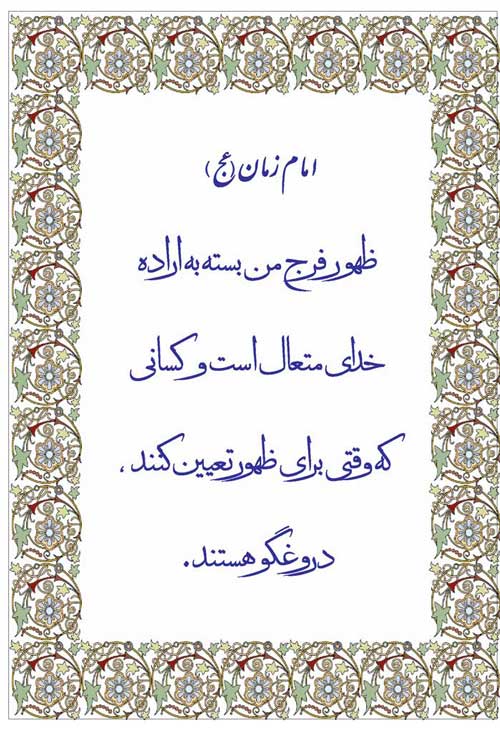 امام زمان (عج)
ظهور فرج من بسته به اراده
خدای متعال است و کسانی
که وقتی برای ظهور تعیین کنند ،
دروغگو هستند .